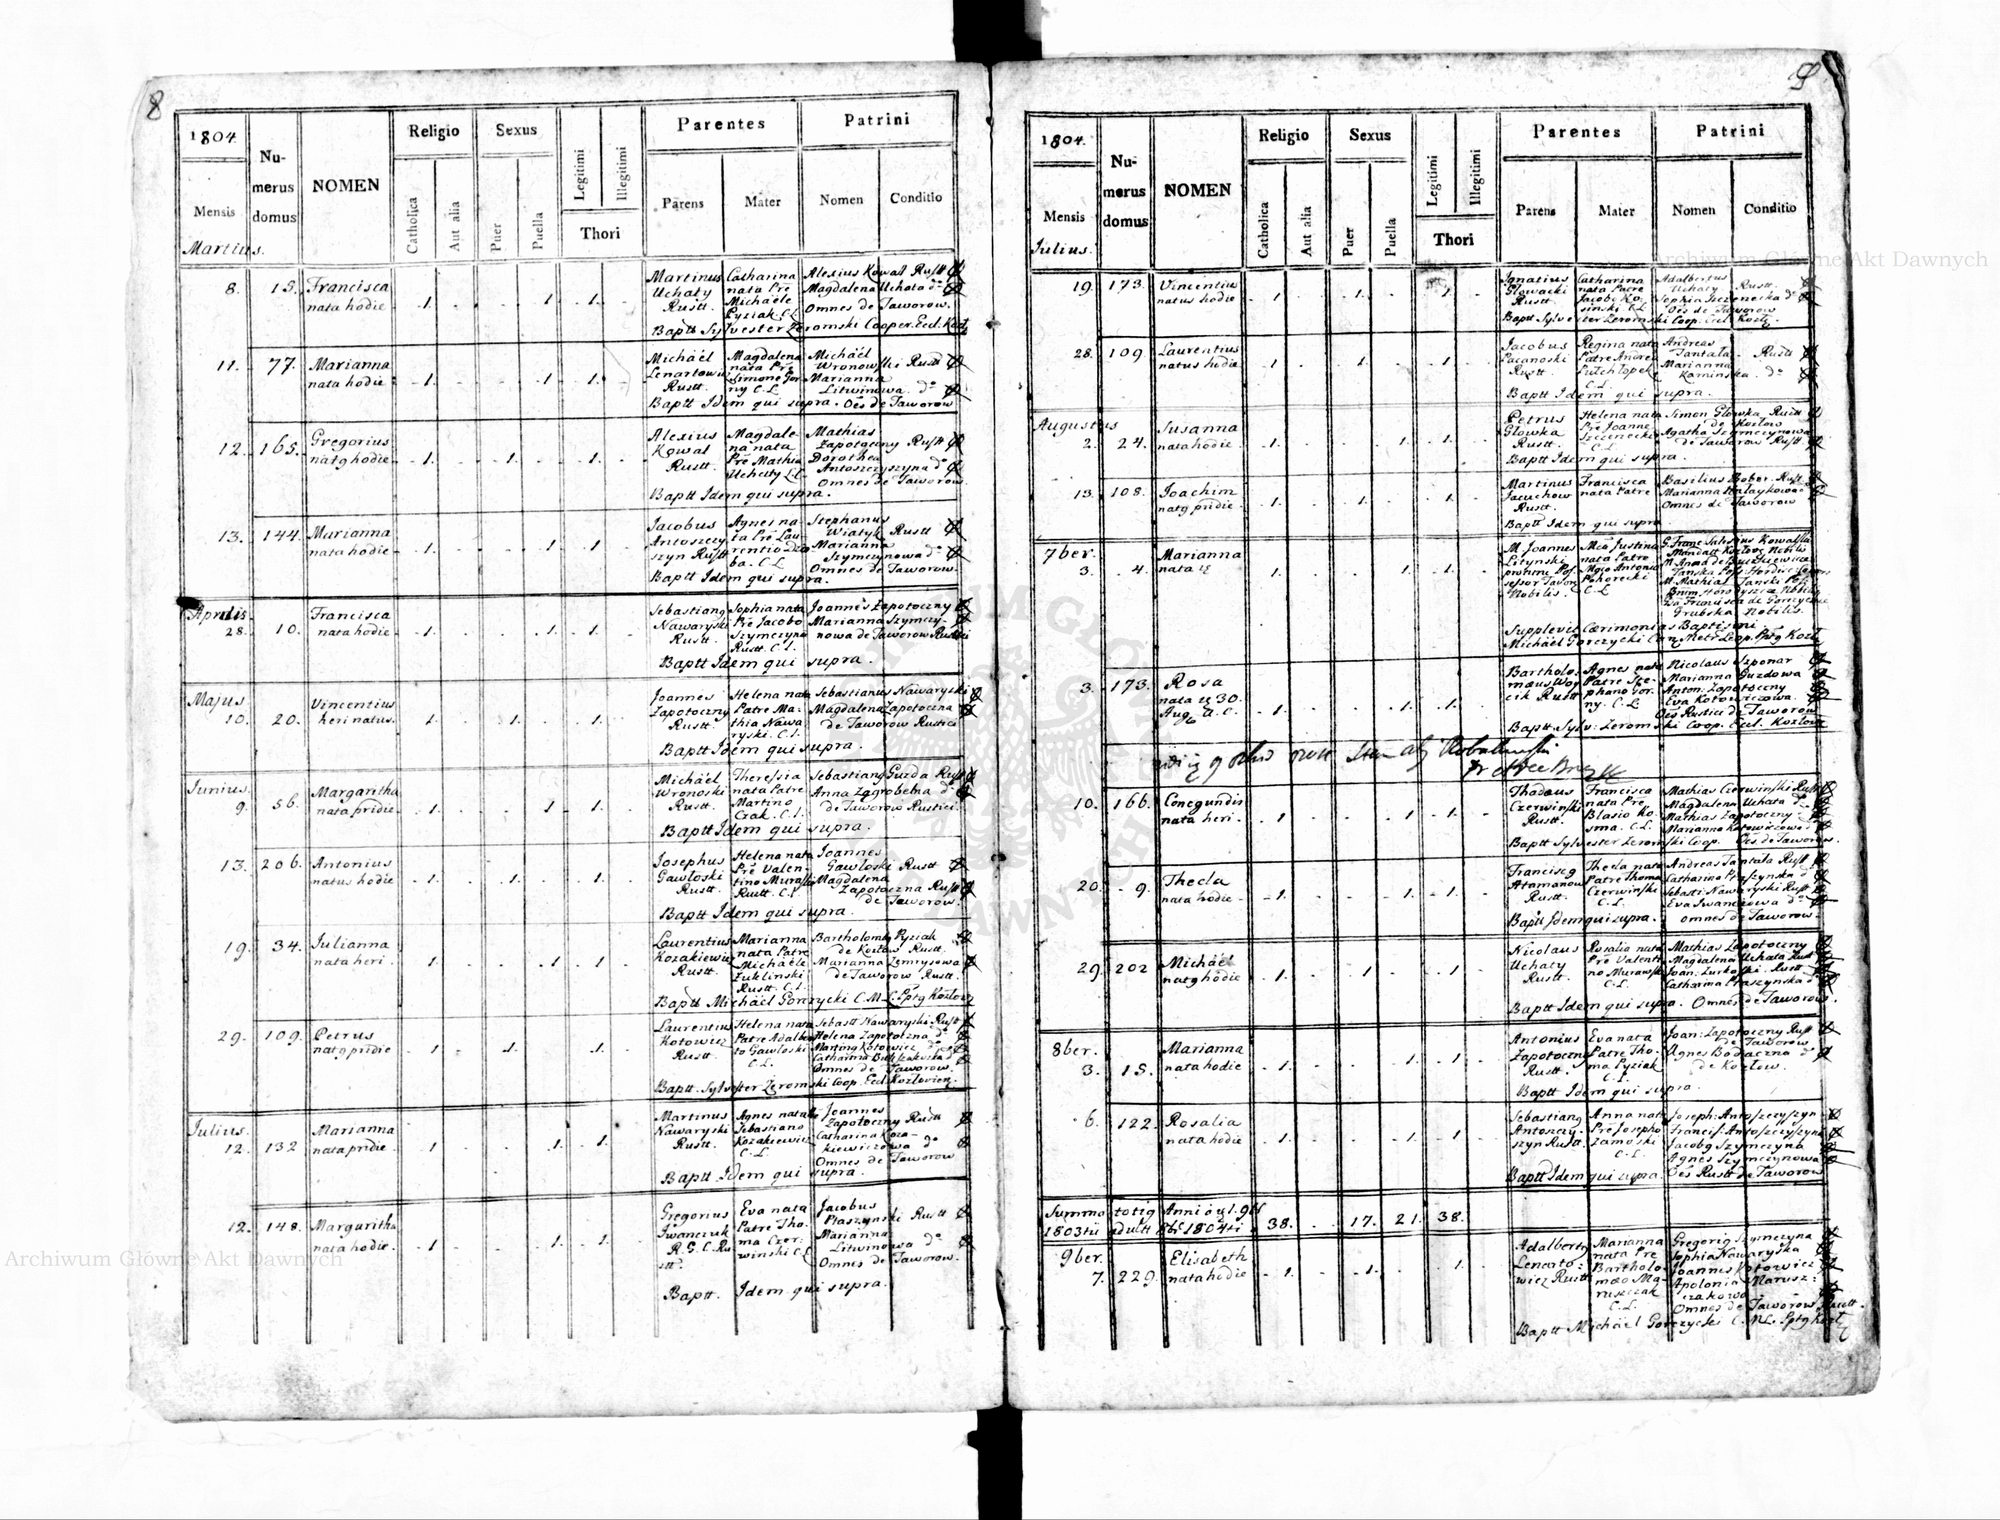 8
1804.
Numerus domus
NOMEN
Religio
Sexus
Legitimi
Illegitimi
Parentes
Patrini
Mensis
Catholica
Aut alia
Puer
Puella
Thori
Parens
Mater
Nomen
Conditio
Martius.
8. 15. Francisca nata hodie .1. 1. .1.
Martinus Uchaty Rustt.
Catharina nata Pre Michaele Pyziak C.L.
Alexius Kowal Rustt
Magdalena Uchata do
Omnes de Jaworow.
Baptt Sylvester Zeromski Cooper. Eccl. Kozł.
11. 77. Marianna nata hodie .1. 1. .1.
Michäel Lenartowicz Rustt.
Magdalena nata Pre Simone Gorny C.L.
Michäel Wronowski Rustt
Marianna Litwinowa. do
Baptt Idem qui supra. Oes de Jaworow
12. 165. Gregorius natg hodie .1. .1. .1.
Alexius Kowal Rustt.
Magdalena nata Pre Mathia Uchaty C.L.
Mathias Zapotoczny Rustt
Dorothea Antoszczyszyna do
Omnes de Jaworow.
Baptt Idem qui supra.
13. 144. Marianna nata hodie .1. .1. .1
Jacobus Antoszczyszyn Rustt
Agnes nata Pre Laurentio C.L.
Stephanus Wiatyk Rustt
Marianna Szymczynowa do
Omnes de Jaworow.
Baptt Idem qui supra.
Aprilis.
28. 10. Francisca nata hodie .1. .1. .1.
Sebastiang Nawaryski Rustt.
Sophia nata Pre Jacobo Szymczyna Rustt. C.L.
Joannes Zapotoczny
Marianna Szymczynowa de Jaworow Rustici
Baptt Idem qui supra.
Majus.
10. 20. Vincentius heri natus. 1. .1. .1.
Joannes Zapotoczny Rustt.
Helena nata Patre Mathia Nawaryski. C.L.
Sebastianus Nawaryski
Magdalena Zapotoczna
de Jaworow Rustici
Baptt Idem qui supra.
Junius.
9. 56. Margaritha nata pridie .1. 1. .1.
Michäel Wronoski Rustt.
Theressia nata Patre Martino Czak. C.L.
Sebastiang Guzda Rustt
Anna Zgrobelna do
de Jaworow Rustici.
Baptt Idem qui supra.
13. 206. Antonius natus hodie .1. .1. .1.
Josephus Gawloski Rustt.
Helena nata Pre Valentino Muraski Rustt. C.L.
Joannes Gawloski Rustt
Magdalena Zapotoczna Rustt
de Jaworow.
Baptt Idem qui supra.
19. 34. Julianna nata heri. .1. .1. .1.
Laurentius Kozakiewicz Rustt.
Marianna nata Patre Michaele Zuklinski Rustt. C.L.
Bartholomg Pyziak
de Kozłow Rustt.
Marianna Zemrysowa
de Jaworow Rustt.
Baptt Michäel Gorzycki C.M.L. Pptg Kozłow
29. 109. Petrus natg pridie .1. .1. .1.
Laurentius Kotowicz Rustt.
Helena nata Patre Adalberto Gawloski C.L.
Sebastt Nawaryski Rustt
Helena Zapotoczna do
Marting Kotowicz do
Catharina
Omnes de Jaworow.
Baptt. Sylvester Zeromski Coop. Eccl. Kozłovien.
Julius.
12. 132 Marianna nata pridie. .1 1. .1.
Martinus Nawaryski Rustt.
Agnes nata Sebastiano Kozakiewicz C.L.
Joannes Zapotoczny Rustt
Catharina Kozakiewiczowa do
Omnes de Jaworow
Baptt Idem qui supra.
12. 148. Margaritha nata hodie. .1 .1. .1.
Gregorius Iwanczuk R.G.C. Rustt.
Eva nata Patre Thoma Czerwinski C.L.
Jacobus Ptaszynski Rustt
Marianna Litwinowa do
Omnes de Jaworow.
Baptt. Idem qui supra.
9
1804.
Numerus domus
NOMEN
Religio
Sexus
Legitimi
Illegitimi
Parentes
Patrini
Mensis
Catholica
Aut alia
Puer
Puella
Thori
Parens
Mater
Nomen
Conditio
Julius.
19 173. Vincentius natus hodie .1. .1. .1.
Ignatius Głowacki Rustt.
Catharina nata Patre Jacobi Kosinski C.L.
Adalbertus Uchaty Rustt.
Sophia Szczeneska do
Oes de Jaworow
Baptt Sylvester Zeromski Coop. Eccl. Kozł.
28. 109. Laurentius natus hodie .1. .1. .1.
Jacobus Pacanoski Rustt.
Regina nata Patre Andrea C.L.
Andreas Tantala Rustt
Marianna Kaminska. do
Baptt Idem qui supra.
Augustus
2. 24. Susanna nata hodie. .1. .1. .1.
Petrus Głowka Rustt.
Helena nata Pre Joanne Szczenecki C.L.
Simon Głowka Rustt
de Kozłow
Agatha Szymczynowa
de Jaworow Rustt.
Baptt Idem qui supra.
13. 108. Joachim natg pridie .1. .1. .1.
Martinus Jacuchow Rustt.
Francisca nata Patre
Basilius Bober. Rustt
Marianna
Omnes de Jaworow
Baptt Idem qui supra
7ber.
3. 4. Marianna nata .1. .1. .1.
M. Joannes Litynski Nobilis.
Justina nata Patre Antonio Pohorecki C.L.
Supplevit Cærimonias Baptismi
Michäel Gorzycki Can. Metr. Leop. Pptg Kozł
3. 173. Rosa nata 30. Aug. a.c. .1. .1. .1.
Bartholomæus Woycik Rustt
Agnes nata Patre Stephano Gorny. C.L.
Nicolaus Szponar
Marianna Guzdowa
Anton: Zapotoczny
Eva Kotowiczowa.
Oes Rustici de Jaworow
Baptt. Sylv: Zeromski Coop. Eccl. Kozłow
10. 166. Conegundis nata heri. .1 .1. .1.
Thadæus Czerwinski Rustt.
Francisca nata Pre Blasio Kosma. C.L.
Mathias Czerwinski Rustt
Magdalena Uchata do
Mathias Zapotoczny
Marianna Kotowiczowa do
Oes de Jaworow
Baptt Sylvester Zeromski Coop.
20. 9. Thecla nata hodie .1. 1. .1.
Franciscg Atamanow Rustt.
Thecla nata Patre Thoma Czerwinski C.L.
Andreas Tantala Rustt
Catharina Ptaszynska do
Sebasti: Nawaryski Rustt
Eva Iwanczowa do
omnes de Jaworow.
Baptt Idem qui supra.
29. 202 Michäel natg hodie .1. .1. .1.
Nicolaus Uchaty Rustt.
Rosalia nata Pre Valentino Murawski C.L.
Mathias Zapotoczny
Magdalena Uchata Rustt
Joan: Zurkoski. Rustt
Catharina Ptaszynska do
Baptt Idem qui supra. Omnes de Jaworow.
8ber.
3. 15. Marianna nata hodie .1. .1. .1.
Antonius Zapotoczny Rustt.
Eva nata Patre Thoma Pyziak C.L.
Joan: Zapotoczny Rustt
de Jaworow
Agnes Bodaczna do
de Kozłow.
Baptt Idem qui supra.
6. 122. Rosalia nata hodie .1. .1. .1.
Sebastiang Antoszczyszyn Rustt.
Anna nata Pre Josepho Zamoski C.L.
Joseph: Antoszczyszyn
Francis: Antoszczyszyna
Jacobg Szymczyna
Agnes Szymczynowa
Oes Rustt de Jaworow
Baptt Idem qui supra
Summa totig Anni
1803tii 1804ti 38. 17. 21. 38.
9ber.
7. 229. Elisabeth nata hodie .1. .1. .1.
Adalbertg Lenartowicz Rustt
Marianna nata Pre Bartholomæo Maruszczak C.L.
Gregorig Szymczyna
Sophia Nawaryska
Joannes Kotowicz
Apolonia Maruszczakowa
Omnes de Jaworow Rustt.
Baptt Michäel Gorzycki C.M.L. Pptg Kozł
Archiwum Główne Akt Dawnych
Archiwum Główne Akt Dawnych
ARCHIWUM GŁÓWNE AKT DAWNYCH